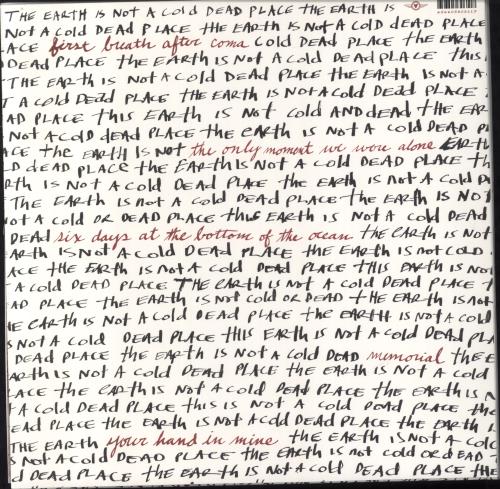 THE EARTH IS NOT A COLD DEAD PLACE THE EARTH IS
NOT A COLD DEAD PLACE THE EARTH IS NOT A COLD DEAD PLACE
ACE first breath after coma COLD DEAD PLACE THE EARTH
DEAD PLACE THE EARTH IS NOT A COLD DEAD PLACE THIS
THE EARTH IS NOT A COLD DEAD PLACE THE EARTH IS NOT A
T A COLD DEAD PLACE THE EARTH IS NOT A COLD DEAD PLACE
AD PLACE THIS EARTH IS NOT COLD AND DEAD THE EAR
NOT A COLD DEAD PLACE THE EARTH IS NOT A COLD DEAD P
ACE THE EARTH IS NOT the only moment we were alone EARTH
LD DEAD PLACE THE EARTH IS NOT A COLD DEAD PLACE TH
RTH IS NOT A COLD DEAD PLACE THE EARTH IS NOT A COLD D
THE EARTH IS NOT A COLD DEAD PLACE THE EARTH IS NOT
NOT A COLD OR DEAD PLACE THIS EARTH IS NOT A COLD DEAD
DEAD six days at the bottom of the ocean THE EARTH IS NOT
EARTH IS NOT A COLD DEAD PLACE THE EARTH IS NOT COLD
ACE THE EARTH IS NOT A COLD DEAD PLACE THIS EARTH IS NO
A COLD DEAD PLACE THE EARTH IS NOT A COLD DEAD PLACE T
AD PLACE THE EARTH IS NOT COLD OR DEAD THE EARTH IS NOT
HE EARTH IS NOT A COLD DEAD PLACE THE EARTH IS NOT A COLD
S NOT A COLD DEAD PLACE THIS EARTH IS NOT A COLD DEAD PLA
DEAD PLACE THE EARTH IS NOT A COLD DEAD memorial THE E
ARTH IS NOT A COLD DEAD PLACE THE EARTH IS NOT A COLD
LACE THE EARTH IS NOT A COLD DEAD PLACE THE EARTH IS N
T A COLD DEAD PLACE THIS IS NOT A COLD DEAD PLACE THE
EAD PLACE THE EARTH IS NOT A COLD DEAD PLACE THE EARTH
THE EARTH your hand in mine THE EARTH IS NOT A COL
S NOT A COLD DEAD PLACE THE EARTH IS NOT COLD OR DEAD
D DEAD PLACE THE EARTH IS NOT A COLD DEAD PLACE THE